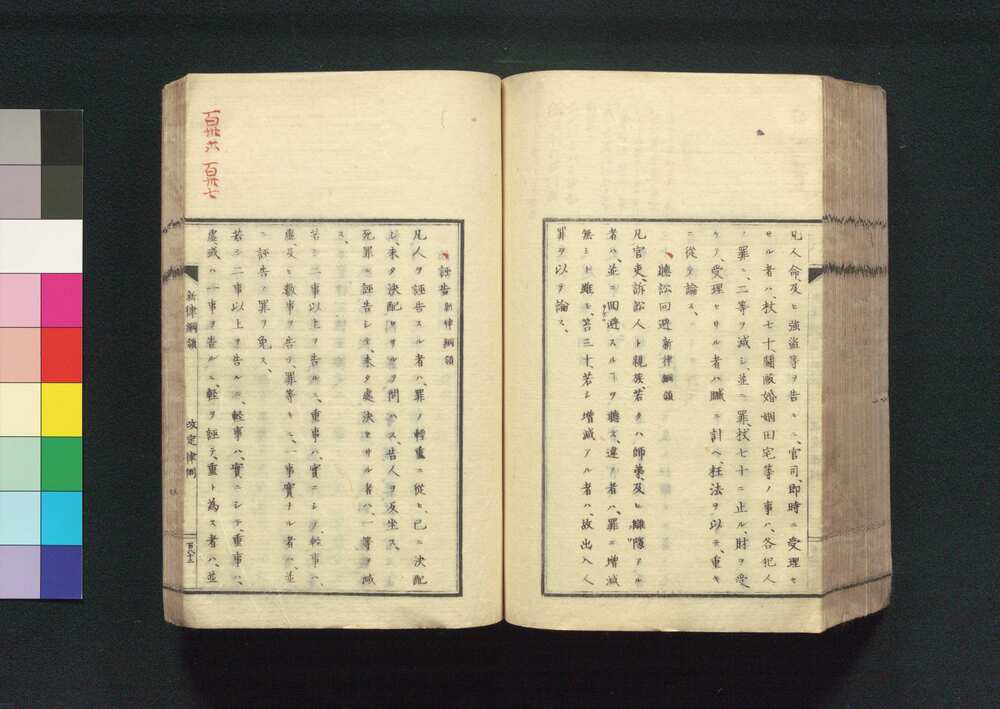 凡人命及ヒ強盗等ヲ告ルニ、官司、即時ニ受理セ
サル者ハ、杖七十、鬪毆婚姻田宅等ノ事ハ、各犯人
ノ罪ニ、二等ヲ減シ、並ニ罪、杖七十ニ止ル、財ヲ受
ケテ、受理セサル者ハ贓ニ計ヘ、枉法ヲ以テ、重キ
ニ從テ論ス、
聽訟回避 新律綱領
凡官吏訴訟人ト親族、若クハ師弟、及ヒ讎隙アル
者ハ、並ニ回避スルヿヲ聽ス、違フ者ハ、罪ニ増減
無シト雖モ、笞三十、若シ増減アル者ハ、故出入人
罪ヲ以テ論ス、
誣告 新律綱領
凡人ヲ誣告スル者ハ、罪ノ輕重ニ從ヒ、已ニ決配
シ、未タ決配セサルヲ問ハス、告人ヲ反坐ス、
死罪ヲ誣告シテ、未タ處決セサル者ハ、一等ヲ減
ス、
若シ二事以上ヲ告ルニ、重事ハ、實ニシテ、輕事ハ、
虚、及ヒ數事ヲ告テ、罪等キニ、一事實ナル者ハ、並
ニ誣告ノ罪ヲ免ス、
若シ二事以上ヲ告ルニ、輕事ハ、實ニシテ、重事ハ、
虚、或ハ一事ヲ告ルニ、輕ヲ誣テ、重ト為ス者ハ、並
新律綱領
改定律例
百八十三
百卌六 百卌七